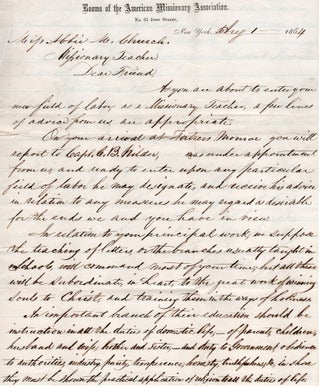 Rooms of the American Missionary Association.
No. 61 John Street,
New York, Aug 1 1864
Miss Abbie M. Church.
Missionary Teacher
Dear Friend,
As you are about to enter your
new field of labor as a Missionary Teacher, a few lines
of advice from us are appropriate.
On your arrival at Fortress Monroe you will
report to Capt. C. B. Wilder, under appointment
from us and ready to enter upon any particular
field of labor he may designate, and receive his advice
in relation to any measures he may regard as desirable
for the ends we and you have in view
In relation to your principal work, we suppose
the teaching of letters, or the branches usually taught in
Schools, will command most of your time; but all these
will be subordinate, in heart, to the great work of winning
souls to Christ, and training them in the ways of holiness
An important branch of their education should be
instruction in all the duties of domestic life,— of parents, children,
husband and wife, brother and sister,— and duty to Government obedience
to authorities, industry, purity, temperance, honesty, truthfulness, &c, in short
they must be shown the practical application of religion to all the duties of life.